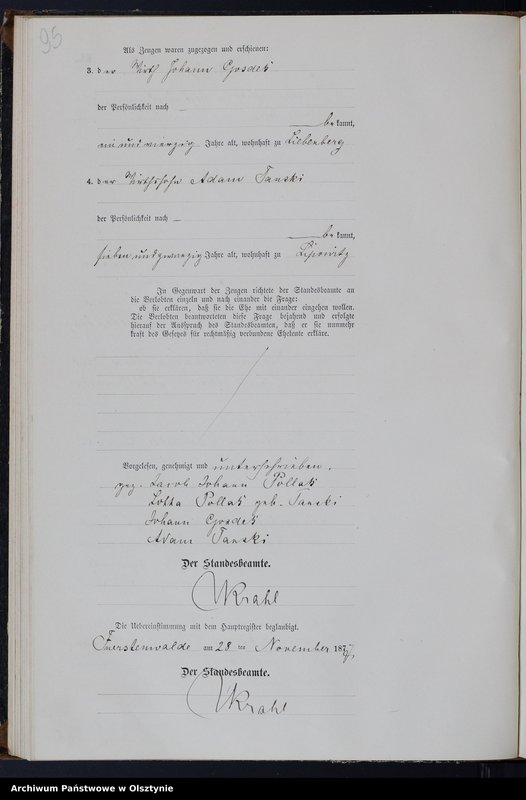 95
Als Zeugen waren zugezogen und erschienen:
3. der Wirth Johann Gosdek
der Persönlichkeit nach —
— bekannt,
ein und vierzig Jahre alt, wohnhaft zu Liebenberg
4. der Wirthssohn Adam Sanski
der Persönlichkeit nach —
— bekannt,
sieben und zwanzig Jahre alt, wohnhaft zu Lipowitz
In Gegenwart der Zeugen richtete der Standesbeamte an
die Verlobten einzeln und nach einander die Frage:
ob sie erklären, daß sie die Ehe mit einander eingehen wollen.
Die Verlobten beantworteten diese Frage bejahend und erfolgte
hierauf der Ausspruch des Standesbeamten, daß er sie nunmehr
kraft des Gesetzes für rechtmäßig verbundene Eheleute erkläre.
Vorgelesen, genehmigt und unterschrieben.
gez. Jacob Johann Pollak
Lotta Pollak geb. Sanski
Johann Gosdek
Adam Sanski
Der Standesbeamte.
Krahl
Die Uebereinstimmung mit dem Hauptregister beglaubigt.
Fuerstenwalde am 28 ten November 187
Der Standesbeamte.
Krahl
Archiwum Państwowe w Olsztynie